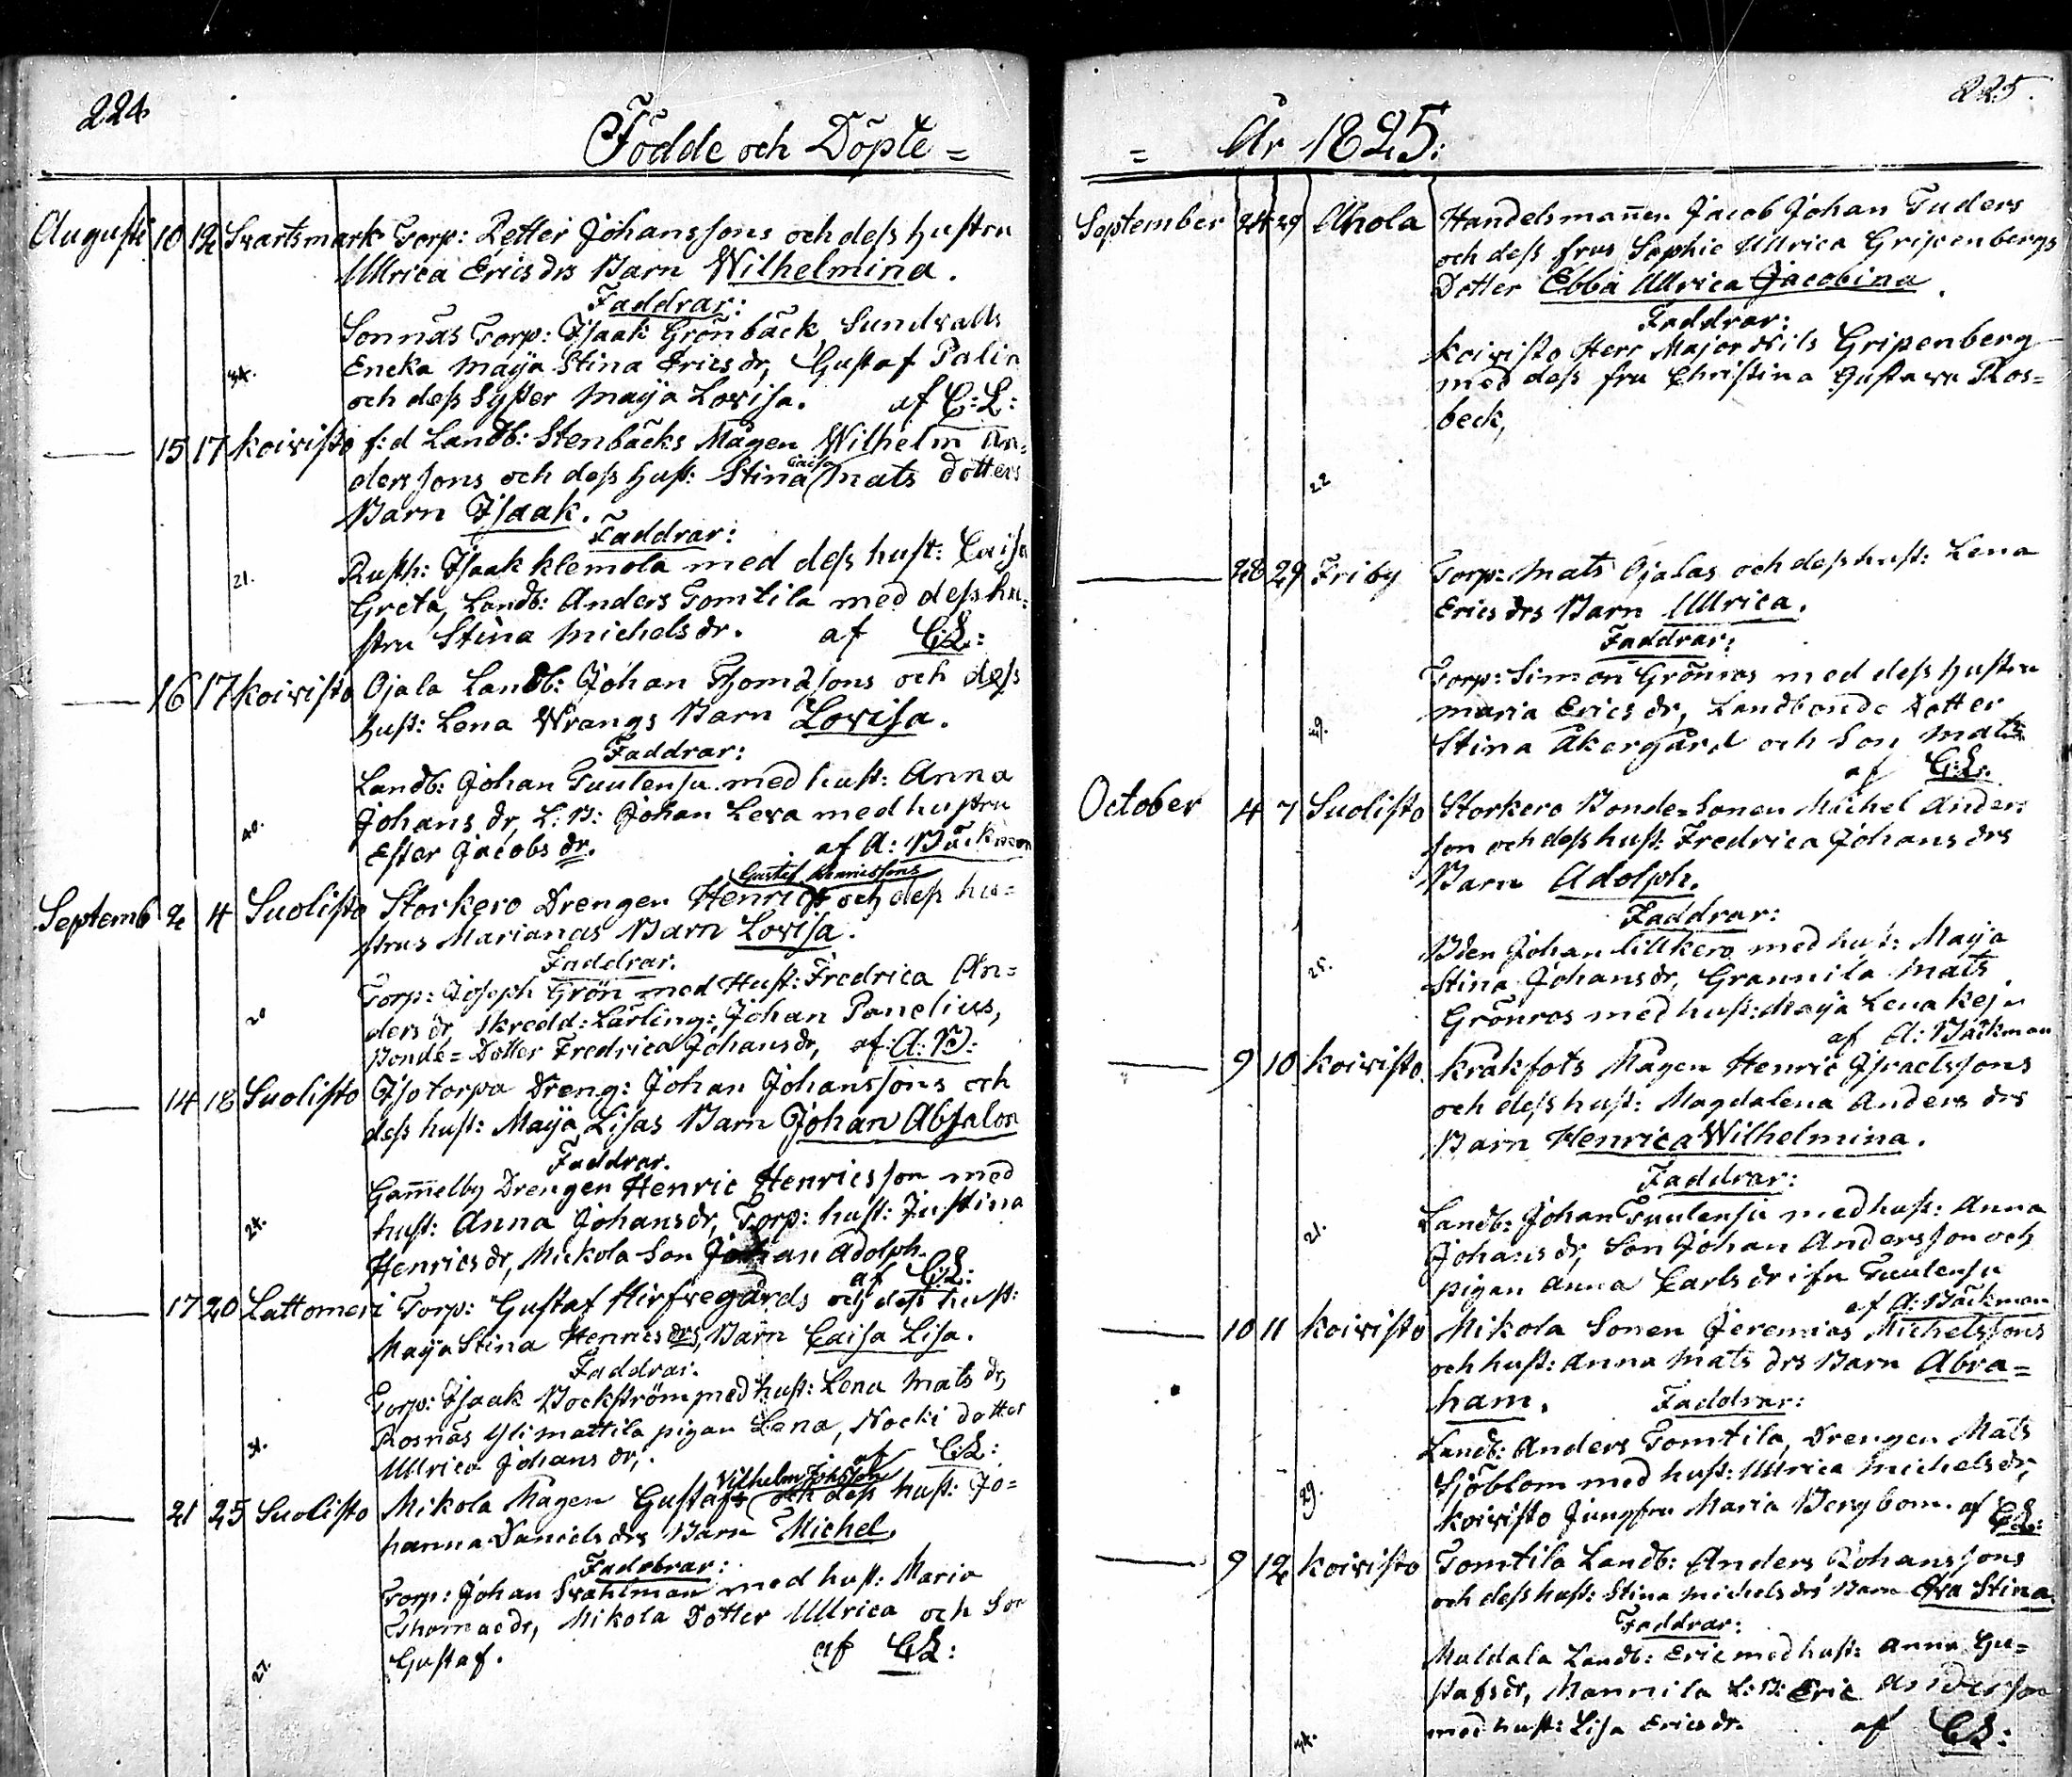 224
Födde och Döpte =
Augusti 10 12 Svartsmark Torp: Petter Johanssons och dess hustru
Ullrica Ericsdrs Barn Wilhelmina.
Faddrar:
Sonnäs Torp: Isaak Grönbäck, Sundvalls
Encka Maÿa Stina Ericsdr, Gustaf Palin
34.
och dess Syster Maÿa Lovisa. af C: L:
15 17 Koivisto f:d Landb: Stenbäcks Mågen Wilhelm An=
Caisa
derssons och dess Hust: Stina Mats dotters
Barn Isaak.
Faddrar:
Rusth: Isaak Klemola med dess hust: Caisa
21.
Greta, Landb: Anders Tomtila med dess hu=
stru Stina Michelsdr. af C:L:
16 17 Koivisto Ojala Landb: Johan Thomassons och dess
Hust: Lena Wrangs Barn Lovisa.
Faddrar:
Landb: Johan Tuulensu med hust: Anna
Johansdr, L: B: Johan Leva med hustru
40.
Ester Jacobsdr. af A: Bäckman
Gustaf Henricssons
Septemb 2 4 Suolisto Storkero Drengen Henrics och dess hu=
strus Marianas Barn Lovisa.
Faddrar.
Torp: Joseph Grön med Hust: Fredrica An=
20
dersdr, Skredd: Lärling: Johan Panelius,
Bonde=Dotter Fredrica Johansdr, af A: B:
14 18 Suolisto Isotorpa Dreng: Johan Johanssons och
dess hust: Maÿa Lisas Barn Johan Absalon
Faddrar.
Gam̄elby Drengen Henric Henricsson med
hust: Anna Johansdr, Torp: hust: Justina
24.
Henricsdr, Mickola Son Johan Adolph.
af C:L:
17 20 Lattomeri Torp: Gustaf Hirfvegårds och dess hust:
Maÿa Stina Henricsdrs, Barn Caisa Lisa.
Faddrar.
Torp: Isaak Bockström med hust: Lena Matsdr,
Rosnäs Ylimattila pigan Lena, Nocki dotter
31.
Ullrica Johansdr,. af C:L:
Vilhelm Johsson
21 25 Suolisto Mikola Mågen Gustafs och dess hust: Jo=
hanna Danielsdrs Barn Michel,
Faddrar:
Torp: Johan Svahlman med hust: Maria
Thomaedr, Mikola Dotter Ullrica och Son
27.
Gustaf. af C:L:
225.
= År 1825:
September 24 29 Ahola Handelsman̄en Jacob Johan Tuders
och dess frus Sophie Ullrica Gripenbergs
Dotter Ebba Ullrica Jacobina.
Faddrar:
Koivisto Herr Major Nils Gripenberg
med dess fru Christina Gustava Ros=
beck,
22
28 29 Friby Torp: Mats Ojalas och dess hust: Lena
Ericsdrs Barn Ullrica.
Faddrar:
Torp: Simon Grönros med dess hustru
Maria Ericsdr, Landbonde Dotter
39.
Stina Åkergård och Son Mats
af C:L:
October 4 7 Suolisto Storkero Bonde=Sonen Michel Anders
son och dess hust: Fredrica Johansdrs
Barn Adolph.
Faddrar:
Bden Johan Lillkero med hust: Maÿa
25.
Stina Johansdr, Grannila Mats
Grönros med hust: Maÿa Lena Kejn
af A: Bäckman
9 10 Koivisto. Kråkfots Mågen Henric Israelssons
och dess hust: Magdalena Andersdrs
Barn Henrica Wilhelmina.
Faddrar:
Landb: Johan Tuulensu med hust: Anna
21.
Johansdr, Son Johan Andersson och
pigan Anna Carlsdr ifr Tuulensu
af A: Bäckman
10 11 Koivisto Mikola Sonen Jeremias Michelssons
och hust: Anna Matsdrs Barn Abra=
ham. Faddrar:
Landb: Anders Tomtila, Drengen Mats
Sjöblom med hust: Ullrica Michelsdr,
29.
Koivisto Jungfru Maria Bergbom. af C:L:
9 12 Koivisto Tomtila Landb: Anders Johanssons
och dess hust: Stina Michelsdrs Barn Eva Stina.
Faddrar:
Muldala Landb: Eric med hust: Anna Gu=
stafsdr, Mannila L: B: Eric Andersson
34.
med hust: Lisa Ericsdr. af C:L: